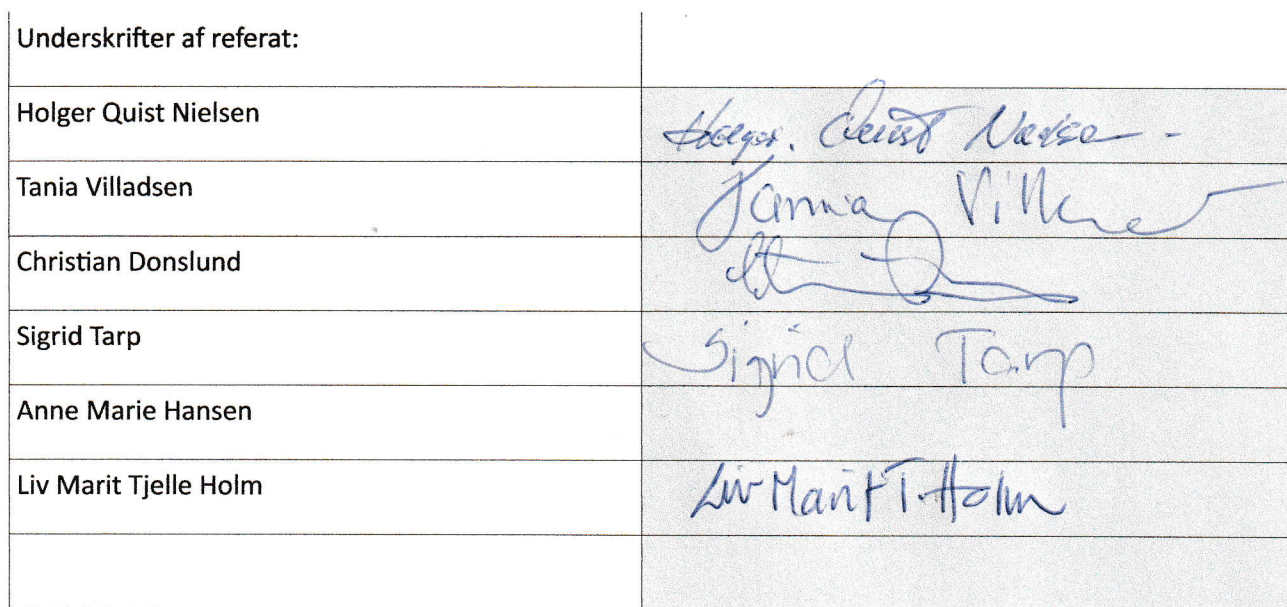 Underskrifter af referat:
Holger Quist Nielsen Holger. Quist Nielsen
Tania Villadsen Tannia
Christian Donslund
Sigrid Tarp Sigrid Tarp
Anne Marie Hansen
Liv Marit Tjelle Holm Liv Marit T. Holm